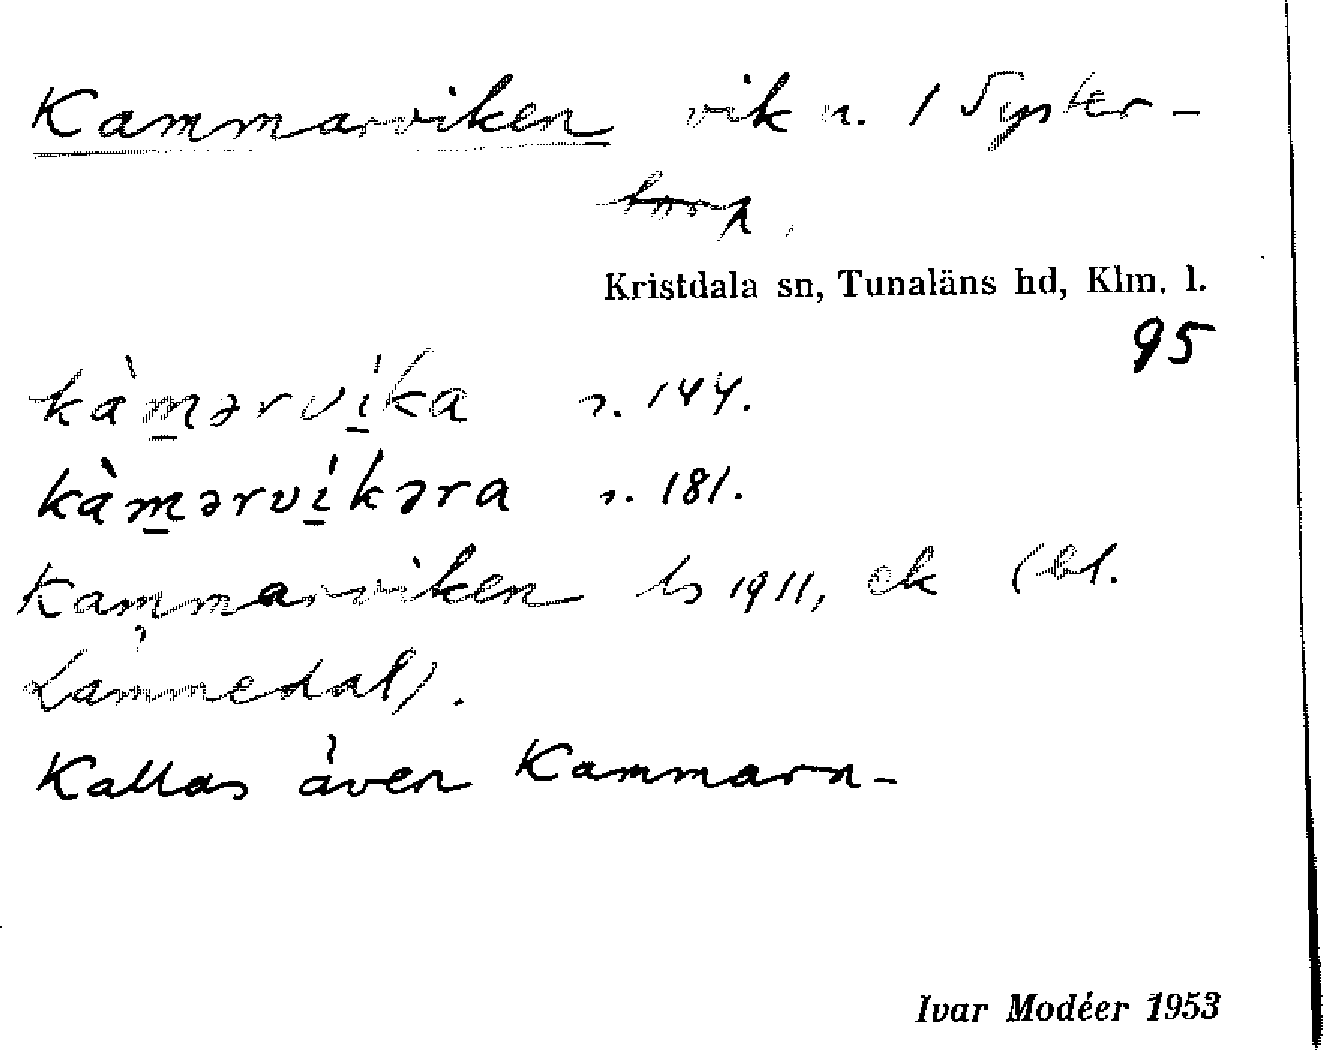 Kammarviken vik n. 1 Syster-
torp.
Kristdala sn, Tunaläns hd, Klm. l.
95
kàm̲ərví̲ka s. 144.
kàm̲ərví̲kəra s. 181.
Kammarviken ls 1911, ek (bl.
Lämmedal).
Kallas även Kammarn-
Ivar Modéer 1953